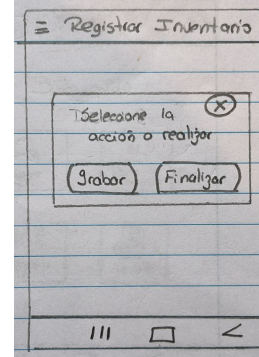 Registrar Inventario
Seleccione la
acción a realizar
Grabar
Finalizar